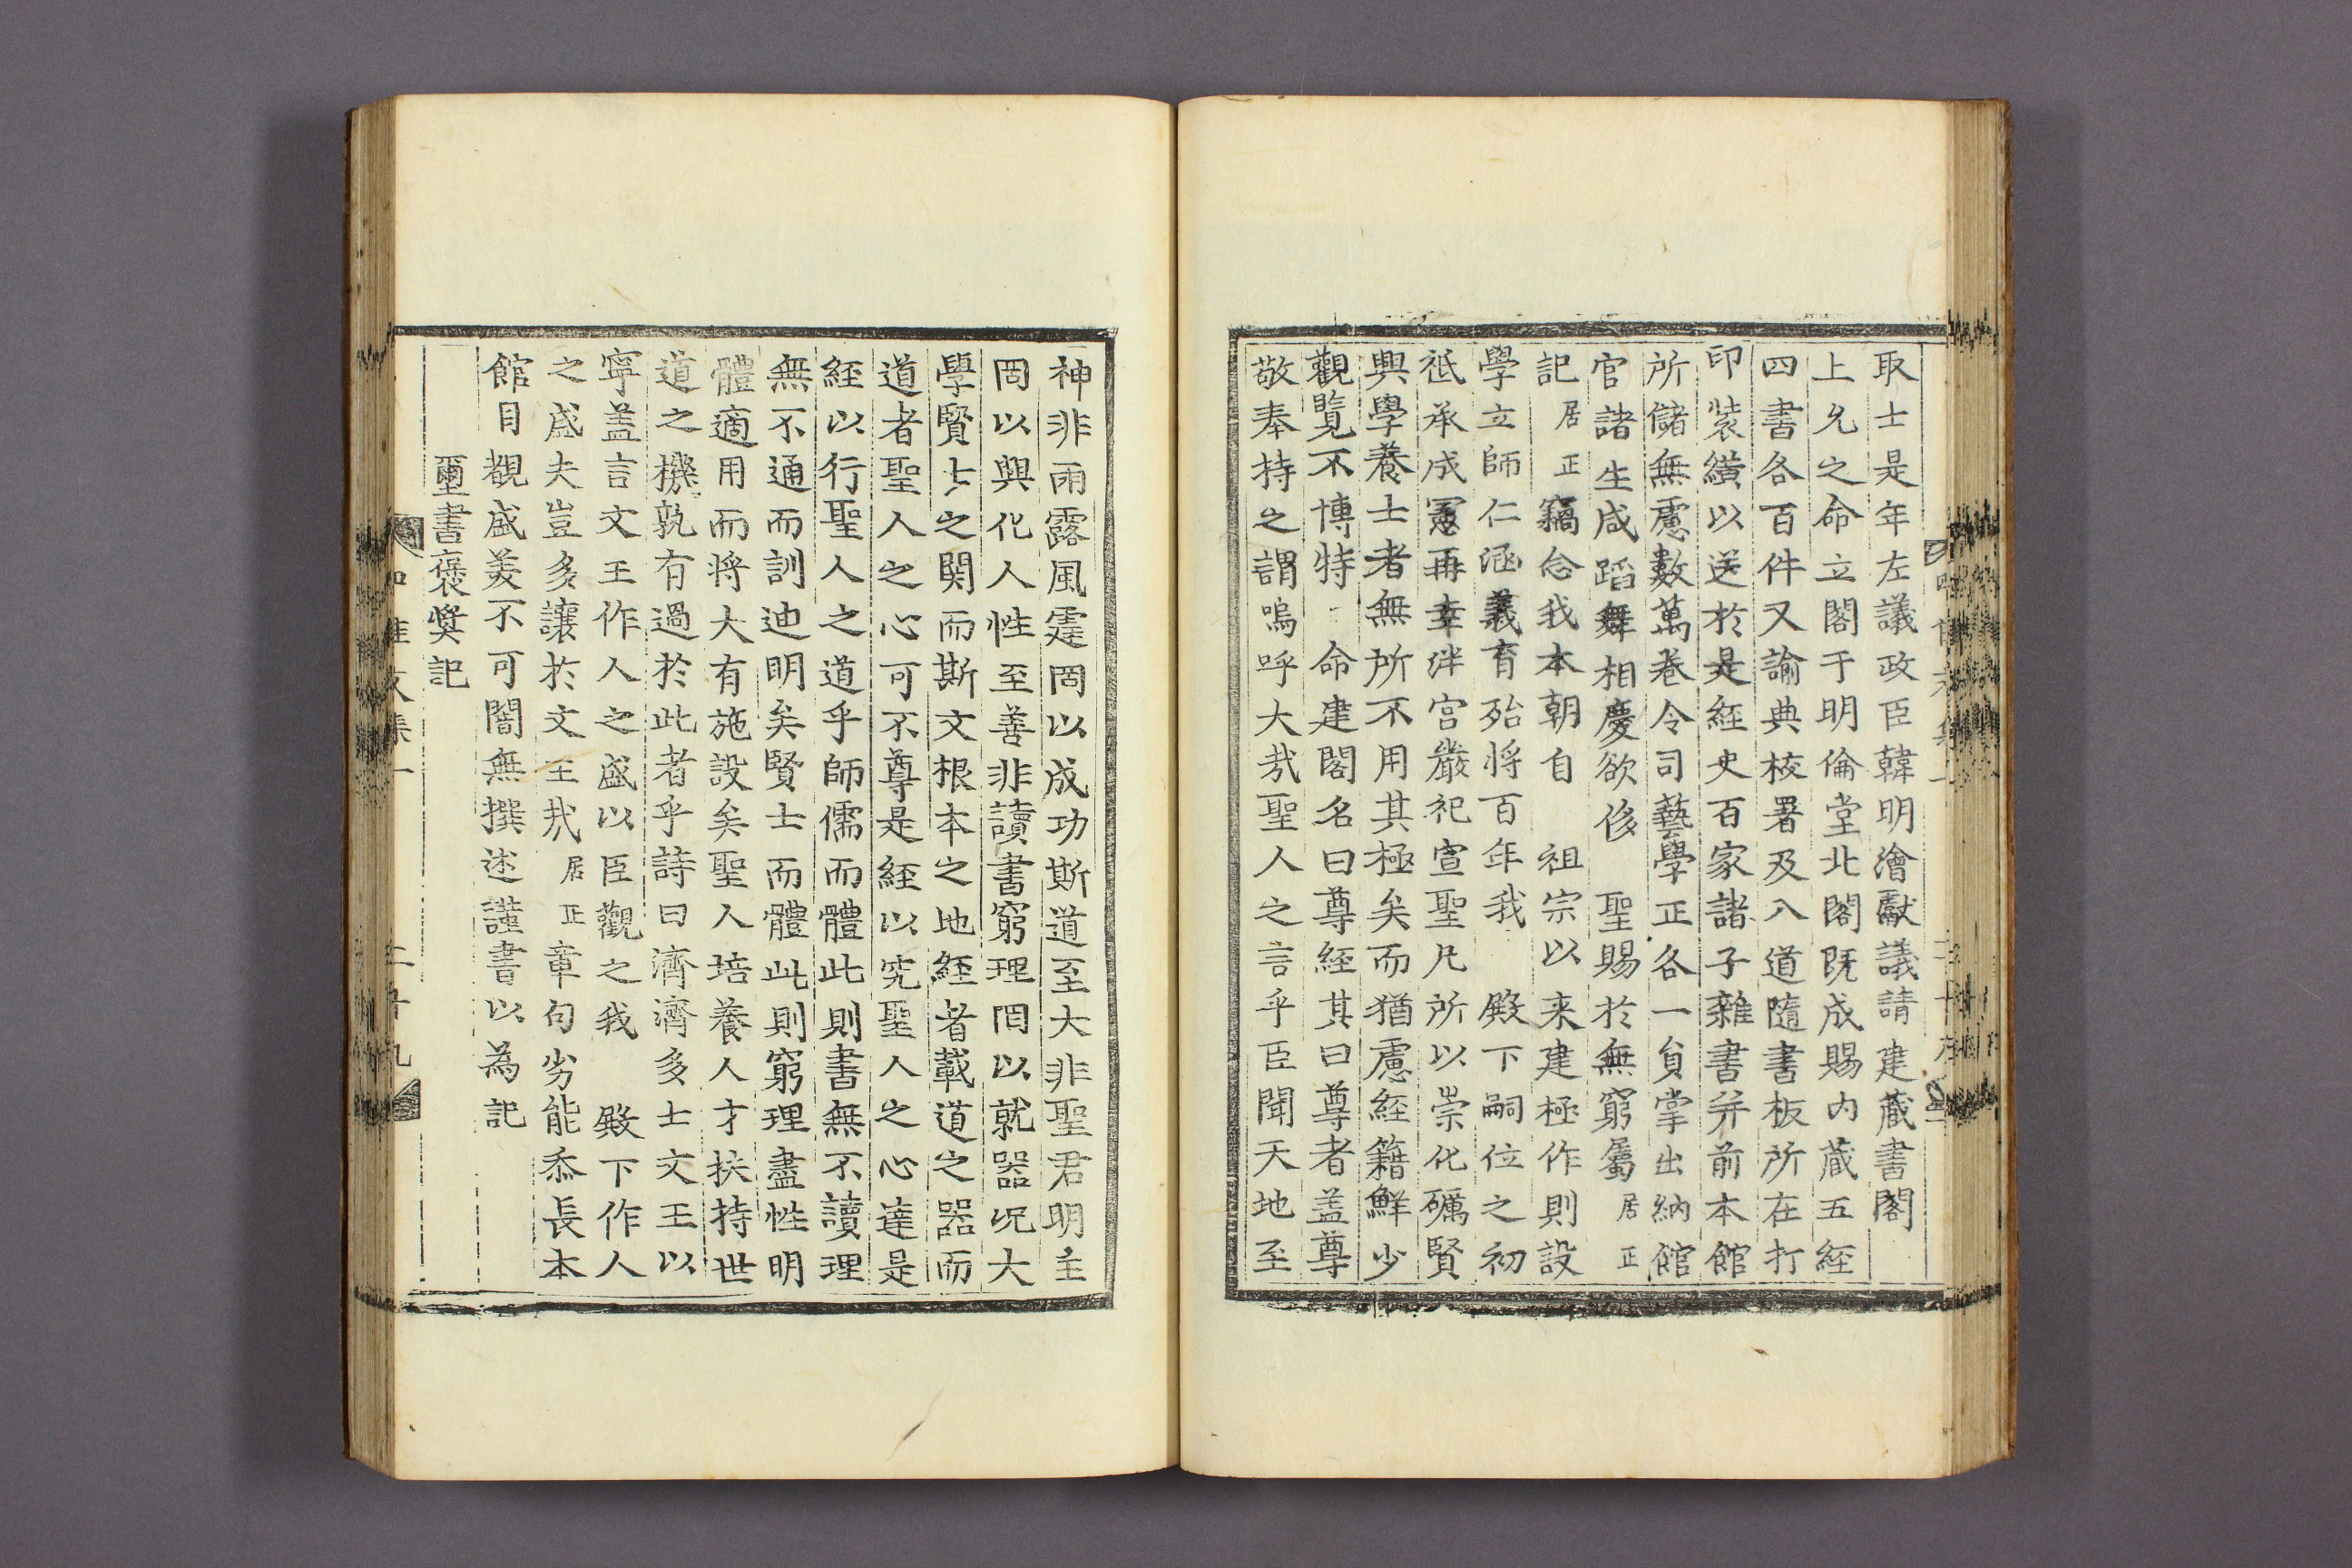 取士是年左議政臣韓明澮獻議請建蔵書閣
上允之命立閣于明倫堂北閣既成賜内蔵五經
四書各百件又諭典校署及八道隨書板所在打
印裝繢以送於是經史百家諸子雜書并前本館
所儲無慮數萬卷令司藝學正各一貟掌出納館
官諸生咸蹈舞相慶欲侈 聖賜於無窮屬居正
記居正竊念我本朝自 祖宗以来建極作則設
學立師仁涵義育殆將百年我 殿下嗣位之初
祗承成憲再幸泮宮嚴祀宣聖凡所以崇化礪賢
興學養士者無所不用其極矣而猶慮經籍鮮少
觀覽不博特 命建閣名曰尊經其曰尊者盖尊
敬奉持之謂嗚呼大㢤聖人之言乎臣聞天地至
神非雨露風霆罔以成功斯道至大非聖君明主
罔以興化人性至善非讀書窮理罔以就器况大
學賢士之関而斯文根本之地經者載道之器而
道者聖人之心可不尊是經以究聖人之心達是
經以行聖人之道乎師儒而體此則書無不讀理
無不通而訓迪明矣賢士而體此則窮理盡性明
體適用而将大有施設矣聖人培養人才扶持世
道之機孰有過於此者乎詩曰濟濟多士文王以
寧盖言文王作人之盛以臣觀之我 殿下作人
之盛夫豈多讓於文王㢤居正章句劣能忝長本
館目覩盛美不可闇無撰述謹書以為記
璽書褒奬記